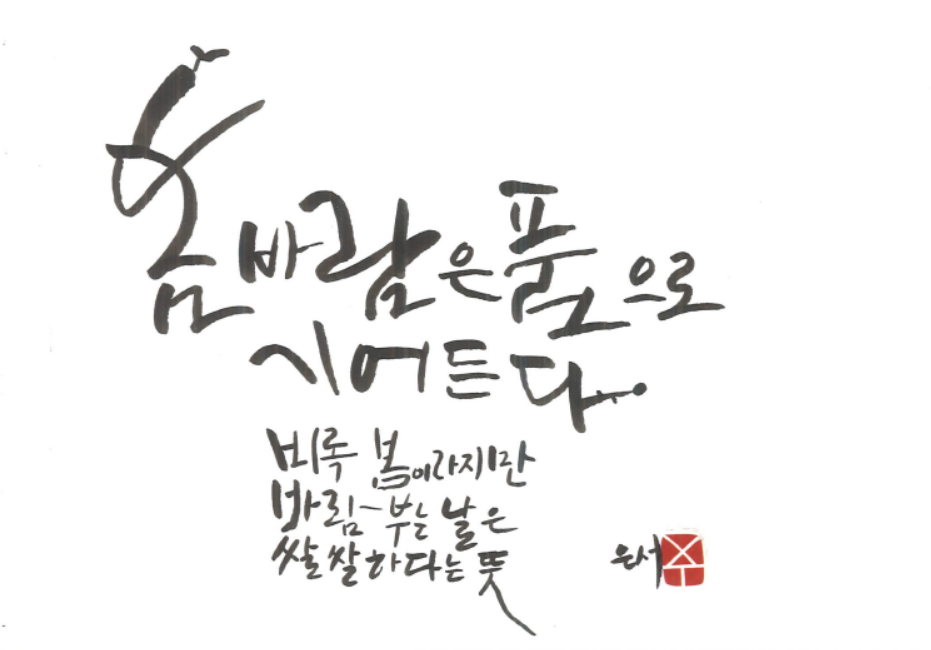 봄바람은 품으로
기어든다
비록 봄이라지만
바람~ 부는 날은
쌀쌀하다는 뜻
은서